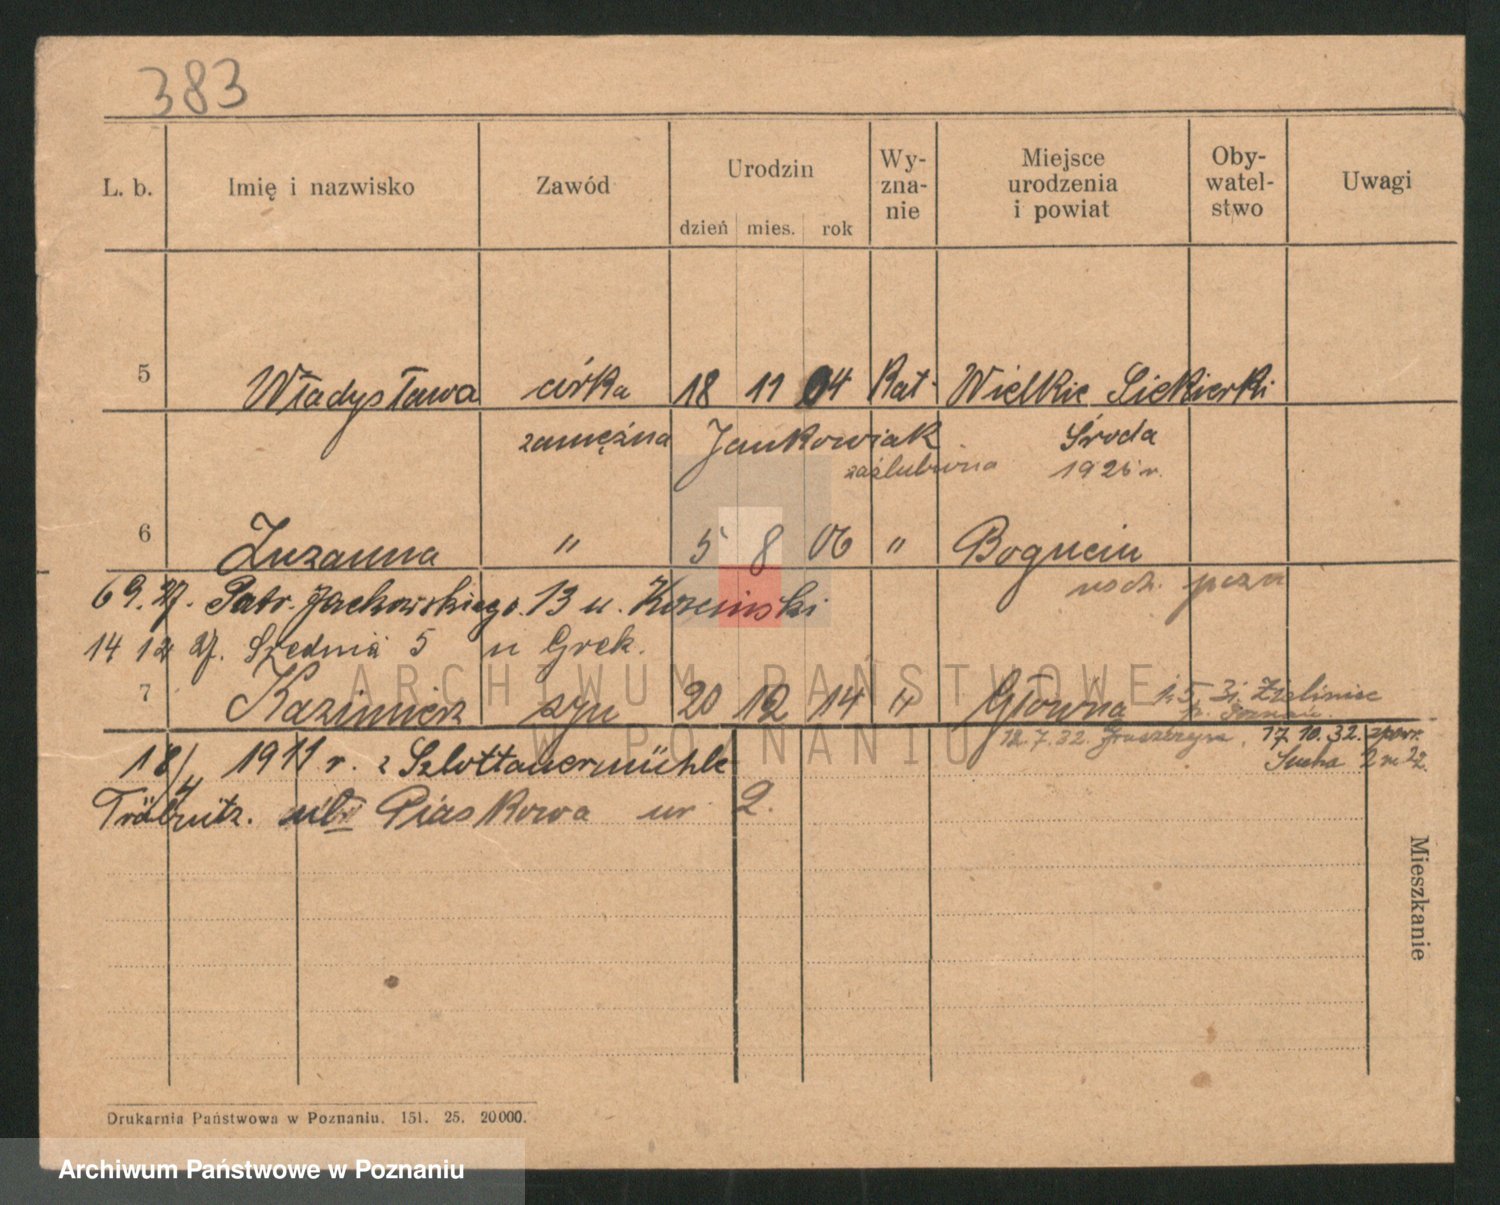 383
L. b. Imię i nazwisko Zawód Urodzin dzień mies. rok Wy-zna-nie Miejsce urodzenia i powiat Oby-watel-stwo Uwagi
5 Władysława córka 18 11 04 Kat. Wielkie Siekierki
zamężna Jankowiak Środa
zaślubiona 1925 r.
6 Zuzanna " 5 8 06 " Bogucin
wsch. pozn
6 9. 27. Patr. Jackowskiego 13 u.
14 12 27. Średnia 5 u Grek.
ARCHIWUM PAŃSTWOWE
7 Kazimierz syn 20 12 14 " Główna 1. 5. 31. Zieliniec
p. Poznań
W POZNANIU
12. 7. 32. 17. 10. 32. zpow.
18/4 1911 r. z Szlottauermühle Sucha 2 m 22.
Piaskowa nr 2.
Mieszkanie
Drukarnia Państwowa w Poznaniu. 151. 25. 20000.
Archiwum Państwowe w Poznaniu